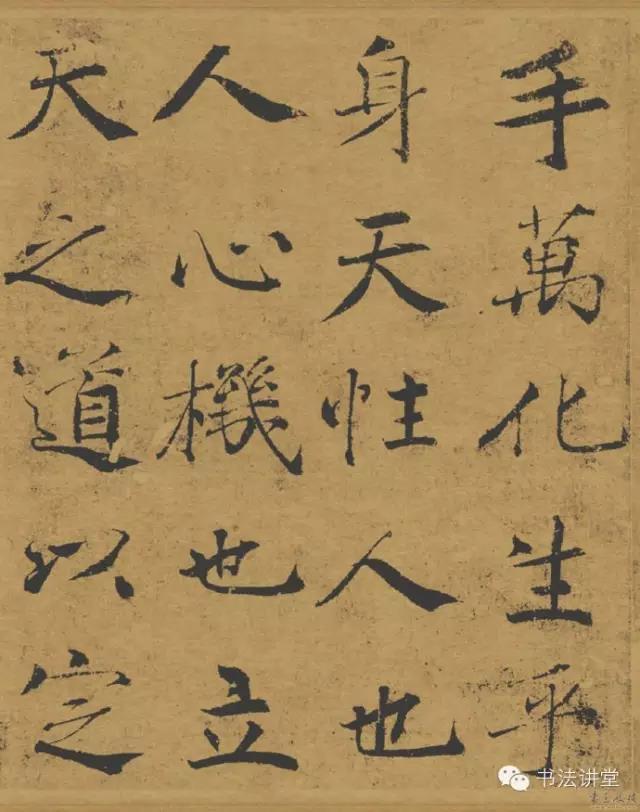 手萬化生乎
身天性人也
人心機也立
天之道以定
书法讲堂